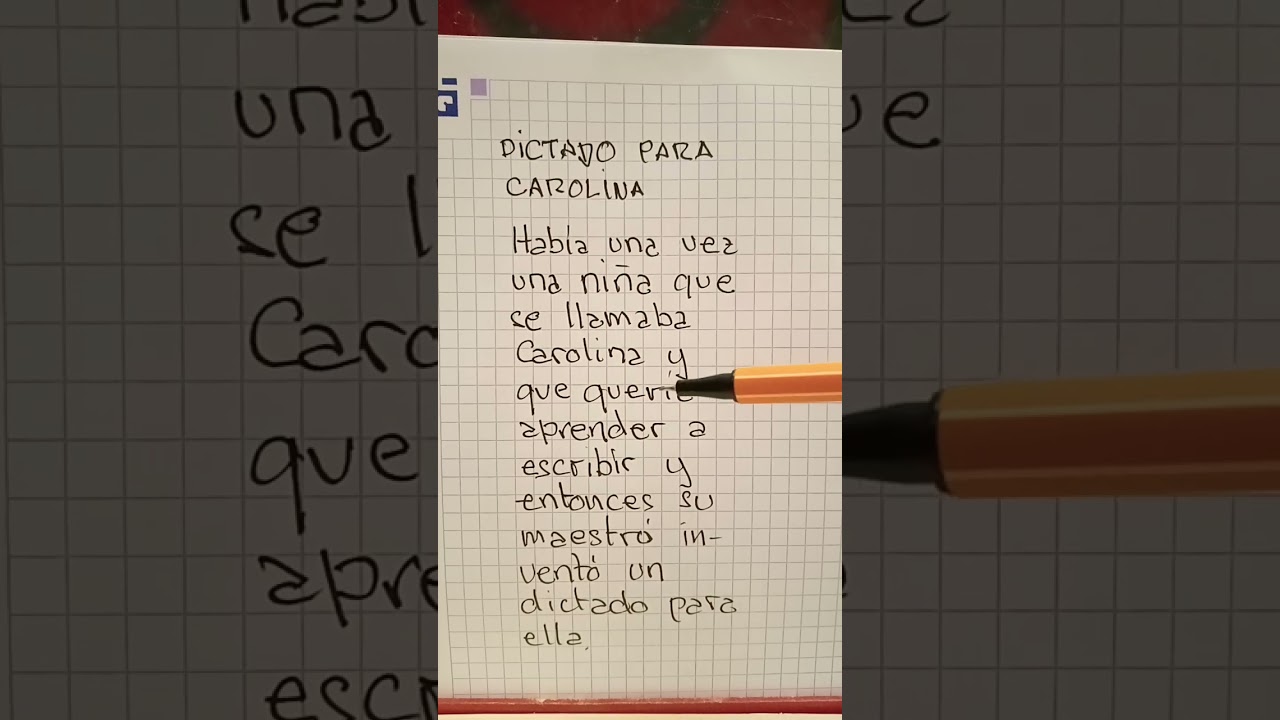 DICTADO PARA
CAROLINA
Había una vez
una niña que
se llamaba
Carolina y
que quería
aprender a
escribir y
entonces su
maestró in-
ventó un
dictado para
ella.